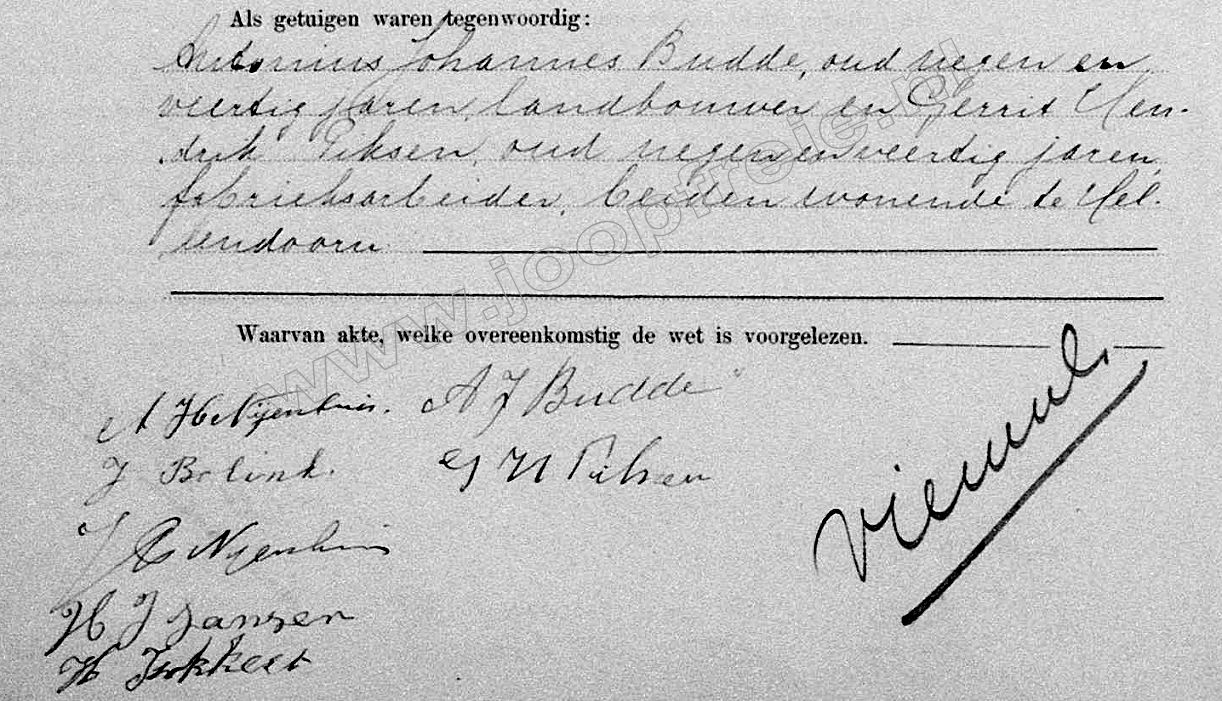 Als getuigen waren tegenwoordig:
Antonius Johannes Budde, oud negen en
veertig jaren, landbouwer en Gerrit Hen-
drik Piksen, oud negenenveertig jaren,
fabrieksarbeider, beiden wonende te Hel-
lendoorn
Waarvan akte, welke overeenkomstig de wet is voorgelezen.
A H Nijenhuis. A J Budde
J Bolink. G H Piksen
J Nijenhuis
H J Jansen
H
www.joopfreije.nl